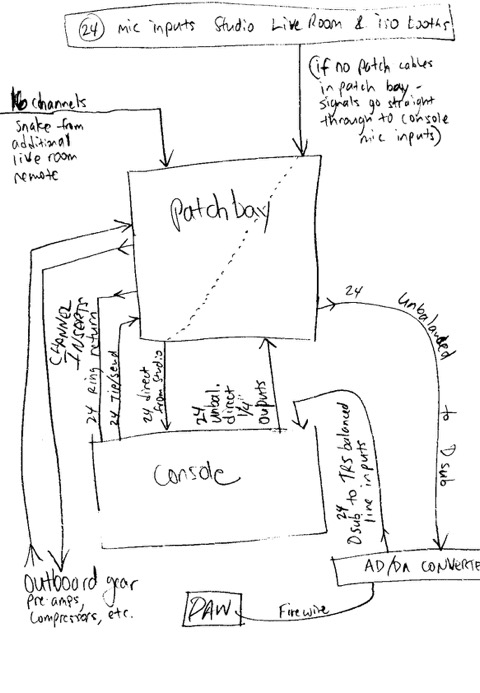 24 mic inputs Studio Live Room & iso booths
(if no patch cables
in patch bay -
signals go straight
through to console
mic inputs)
16 channels
Snake from
additional
live room
remote
Patchbay
24
Unbalanded
to
Dsub
CHANNEL
INSERTS
24 Ring return
24 Tip/send
24 direct
from Studio
24
Unbal.
direct
1/4"
Outputs
24
Dsub to TRS balanced
line inputs
Console
Outboard gear
Pre-amps,
Compressors, etc.
DAW
Firewire
AD/DA CONVERTE